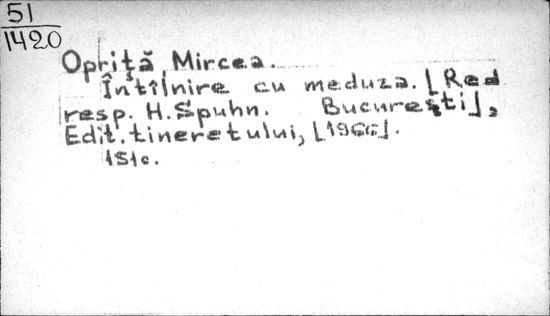 51
1420
Opriță, Mircea.
Întîlnire cu meduza. [Red
resp. H. Spuhn. București],
Edit. tineretului, [1966].
151c.